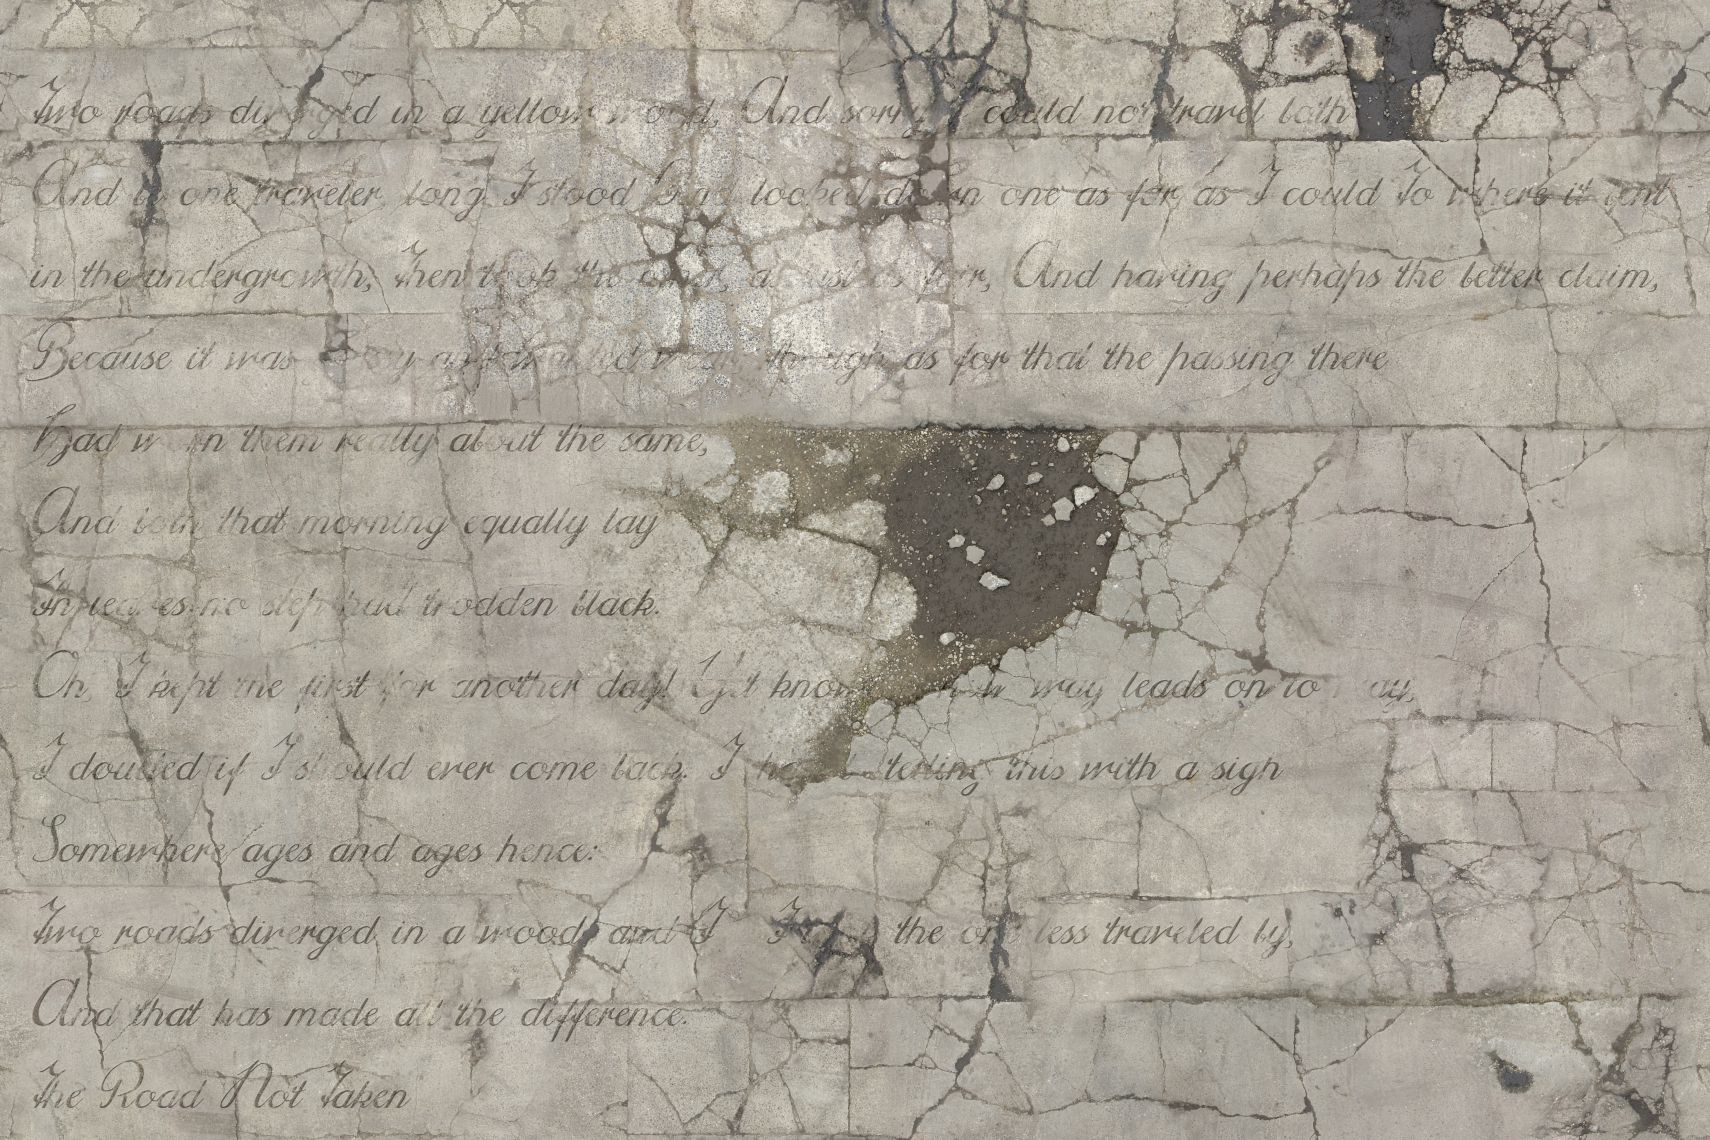 Two roads diverged in a yellow wood, And sorry I could not travel both
And be one traveler, long I stood And looked down one as far as I could To where it bent
in the undergrowth; Then took the other, as just as fair, And having perhaps the better claim,
Because it was wanted wear Though as for that the passing there
Had worn them really about the same,
And both that morning equally lay
In leaves no step had trodden black.
Oh, I kept the first for another day! Yet way leads on to way,
I doubted if I should ever come back. I telling this with a sigh
Somewhere ages and ages hence:
Two roads diverged in a wood, and I I the one less traveled by,
And that has made all the difference.
The Road Not Taken